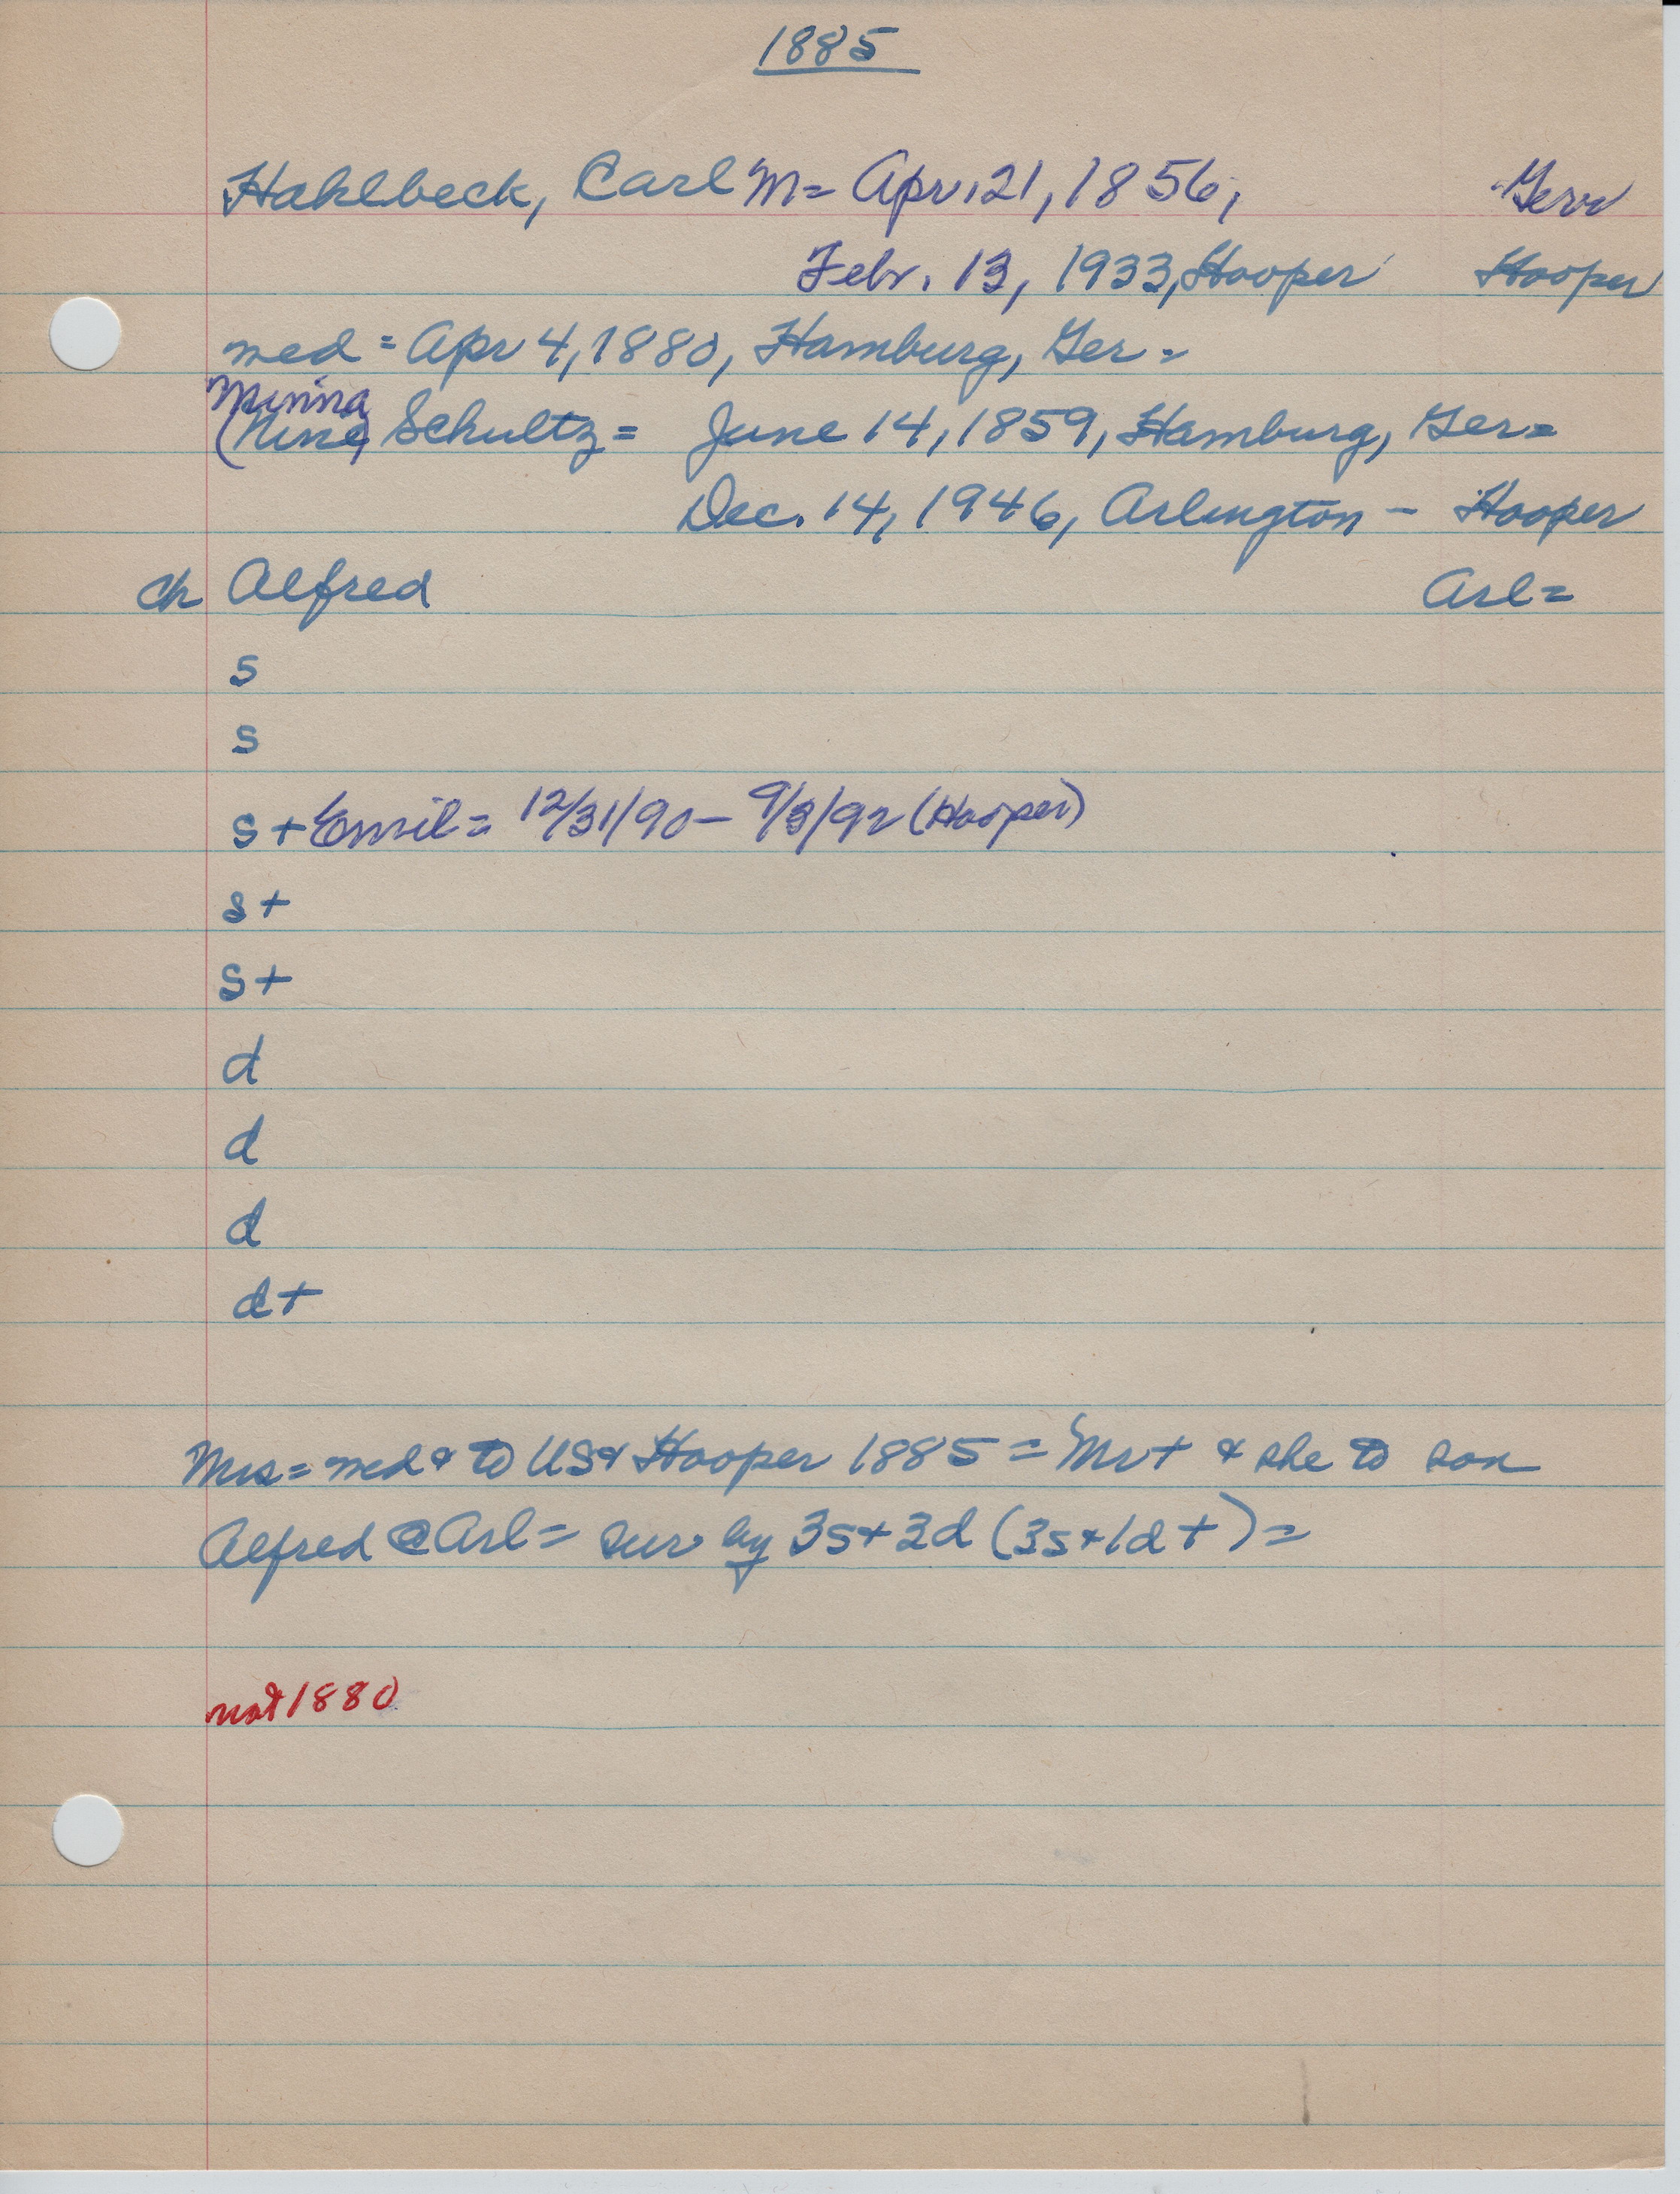 1885
Hahlbeck, Carl M= Apr. 21, 1856, Ger
Febr. 13, 1933, Hooper Hooper
med = Apr 4, 1880, Hamburg, Ger =
Minna
(Nina) Schultz = June 14, 1859, Hamburg, Ger=
Dec. 14, 1946, Arlington - Hooper
Ch Alfred Arl=
s
s
s + Emil = 12/31/90 - 9/3/92 (Hooper)
s +
s +
d
d
d
d +
Mrs = med & to US & Hooper 1885 = Mr + & she to son
Alfred @ Arl = sur by 3s + 3d (3s + 1d +) =
not 1880